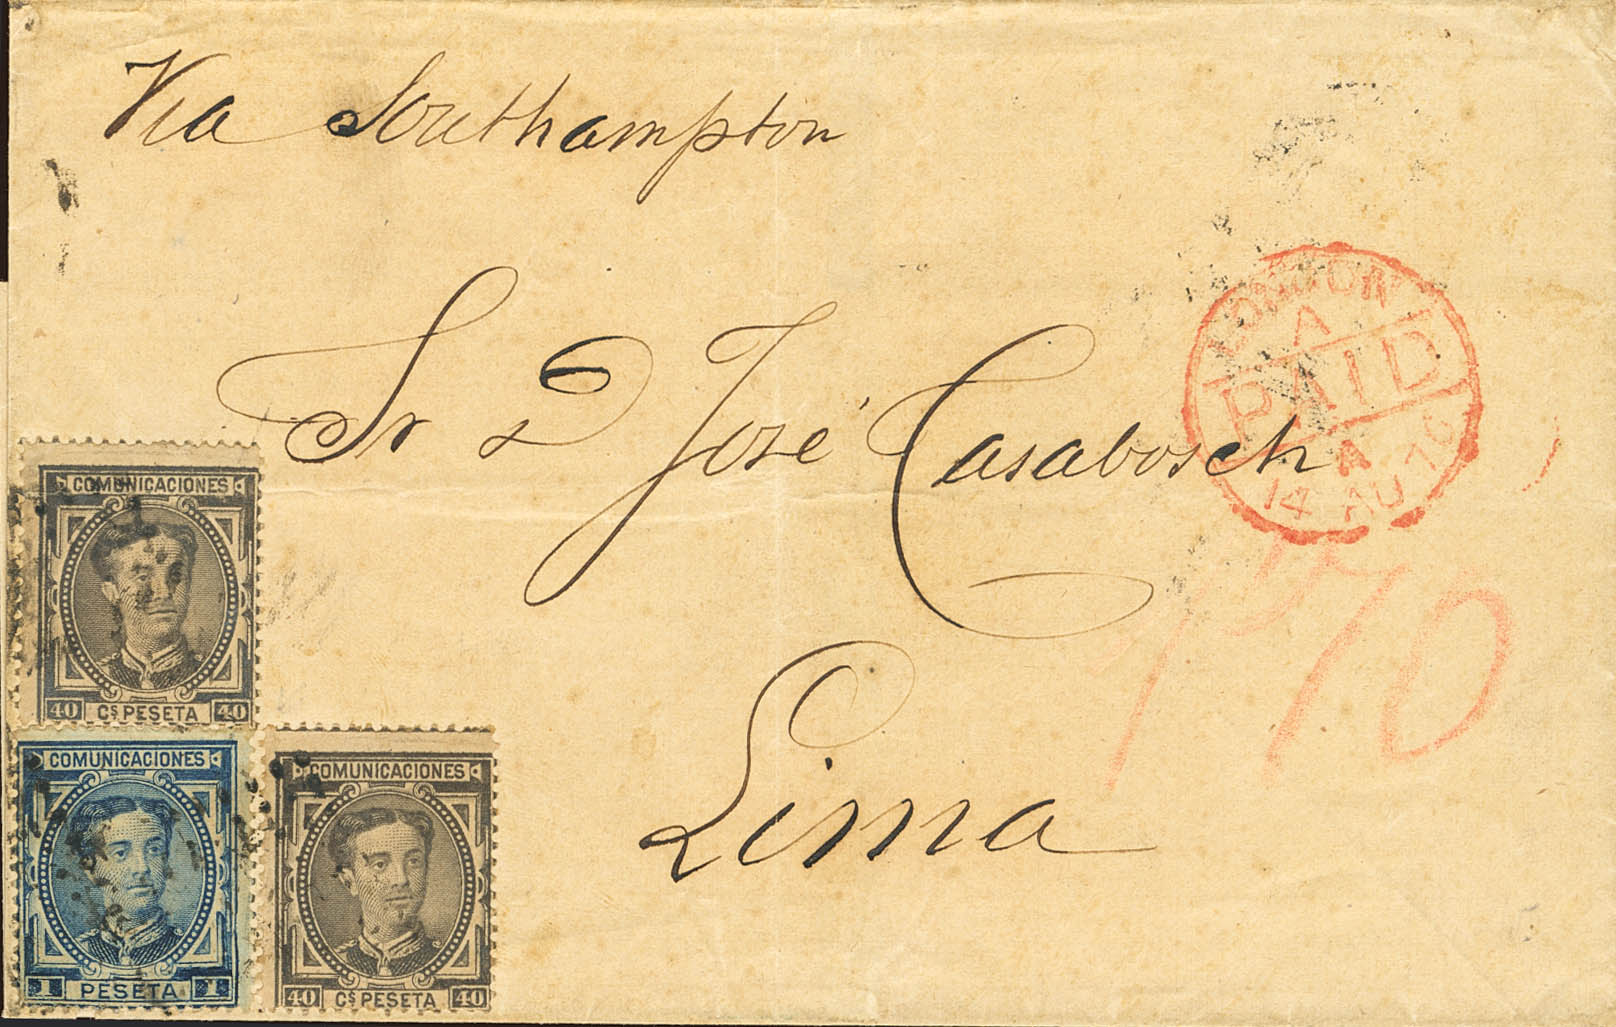 Via Southampton
Sr D José Casabosch
Lima
LONDON
A
PAID
A
14 AU 76
COMUNICACIONES
40 Cs PESETA 40
COMUNICACIONES
1 PESETA 1
COMUNICACIONES
40 Cs PESETA 40